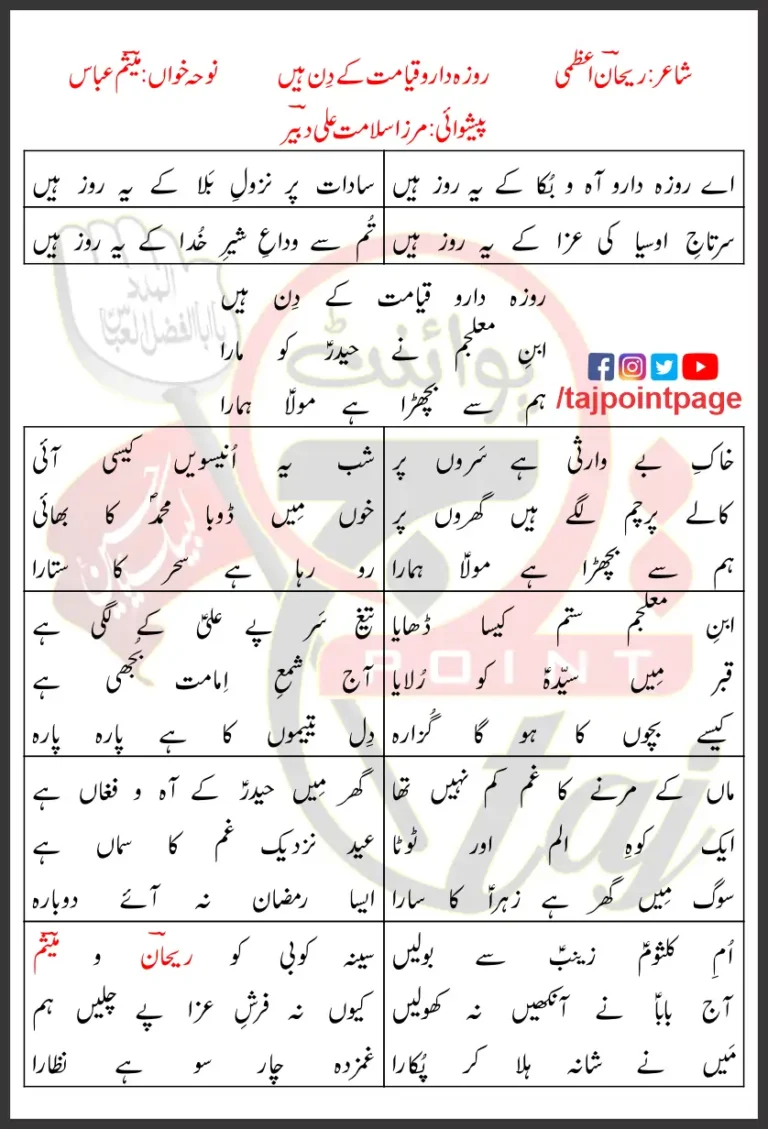 شاعر: ریحانؔ اعظمی روزہ دارو قیامت کے دِن ہیں نوحہ خواں: میثمؔ عباس
پیشوائی: مرزا سلامت علی دبیرؔ
اے روزہ دارو آہ و بُکا کے یہ روز ہیں
سادات پر نزولِ بَلا کے یہ روز ہیں
سرتاجِ اوسیا کی عزا کے یہ روز ہیں
تُم سے وداعِ شیرِ خُدا کے یہ روز ہیں
روزہ دارو قیامت کے دِن ہیں
ابنِ معلجم نے حیدرؑ کو مارا
ہم سے بچھڑا ہے مولاؑ ہمارا
/tajpointpage
خاکِ بے وارثی ہے سَروں پر
کالے پرچم لگے ہیں گھروں پر
ہم سے بچھڑا ہے مولاؑ ہمارا
شب یہ اُنیسویں کیسی آئی
خوں مِیں ڈوبا محمدؐ کا بھائی
رو رہا ہے سحر کا ستارا
ابنِ معلجم ستم کیسا ڈھایا
قبر مِیں سیّدہؑ کو رُلایا
کیسے بچوں کا ہو گا گُزارہ
تیغ سَر پے علیؑ کے لگی ہے
آج شمعِ اِمامت بُجھی ہے
دِل یتیموں کا ہے پارہ پارہ
ماں کے مرنے کا غم کم نہیں تھا
ایک کوہِ الم اور ٹوٹا
سوگ مِیں گھر ہے زہراؑ کا سارا
گھر مِیں حیدرؑ کے آہ و فغاں ہے
عید نزدیک غم کا سماں ہے
ایسا رمضان نہ آئے دوبارہ
اُمِ کلثومؑ زینبؑ سے بولیں
آج باباؑ نے آنکھیں نہ کھولیں
مَیں نے شانہ ہلا کر پُکارا
سینہ کوبی کو ریحانؔ و میثمؔ
کیوں نہ فرشِ عزا پے چلیں ہم
غمزدہ چار سو ہے نظارا
المدد
یا ابا الفضل العباسؑ
لبیک یا حسینؑ
تاج
پوائنٹ
POINT
taj